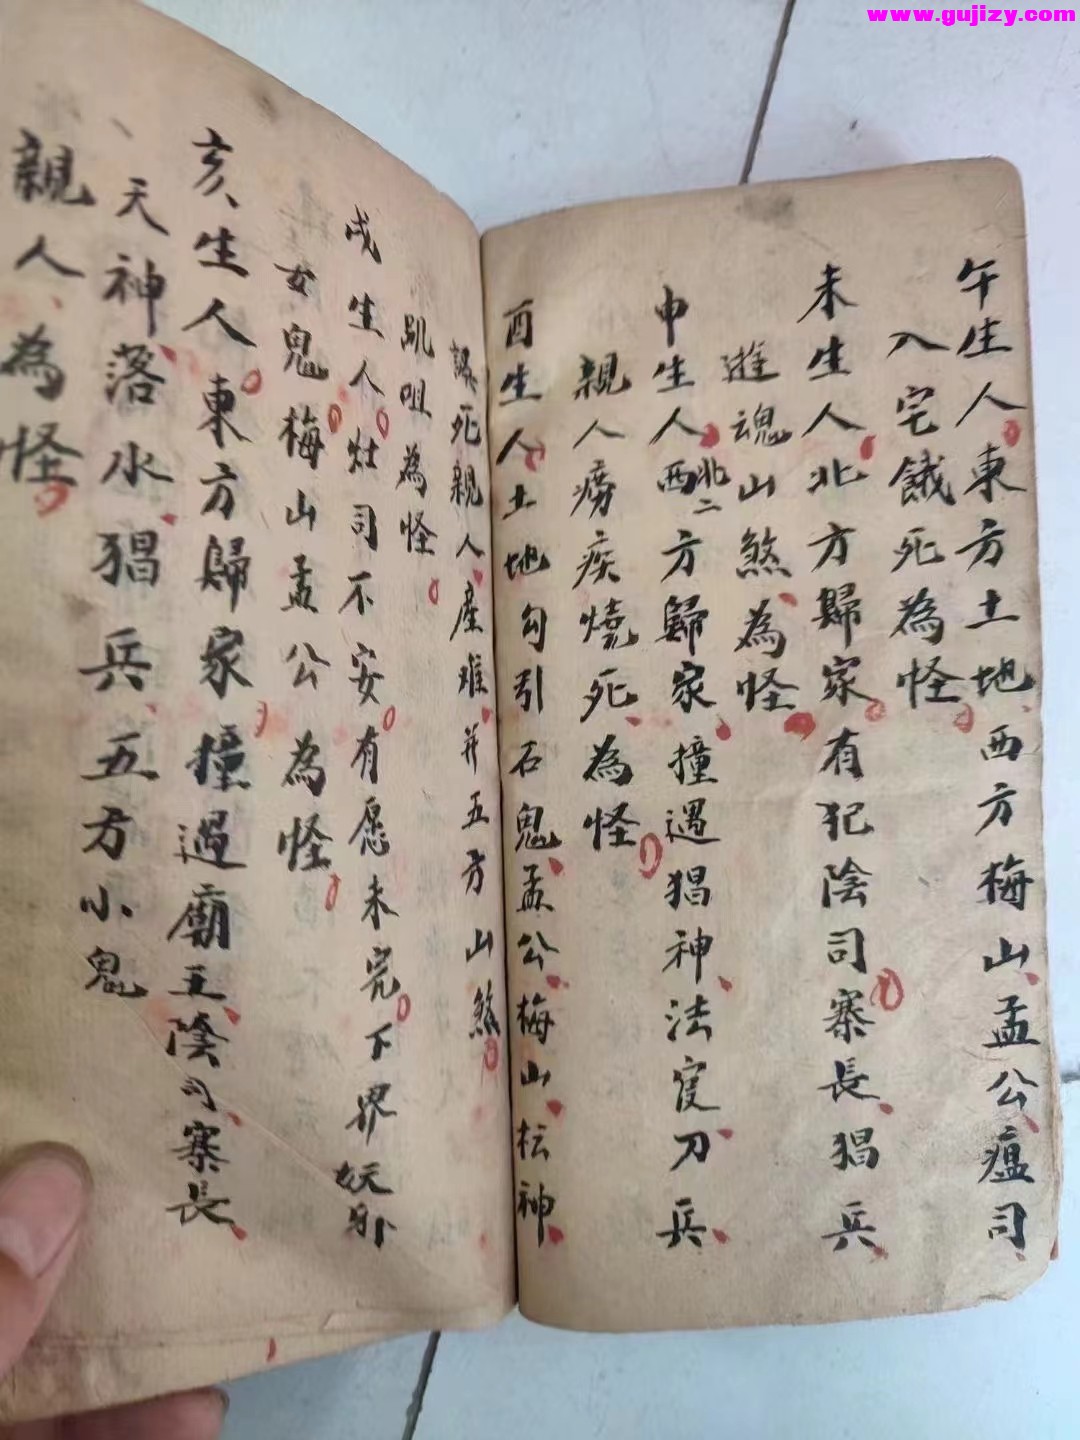 www.gujizy.com
午生人東方土地西方梅山孟公瘟司
入宅餓死為怪
未生人北方歸家有犯陰司寨長猖兵
遊魂山煞為怪
申生人西北二方歸家撞遇猖神法官刀兵
親人癆疾燒死為怪
酉生人土地勾引石鬼孟公梅山枟神
死親人產难并五方山煞
咀為怪
戌生人灶司不安有愿未完下界妖邪
女鬼梅山孟公為怪
亥生人東方歸家撞遇廟王陰司寨長
天神落水猖兵五方小鬼
親人為怪